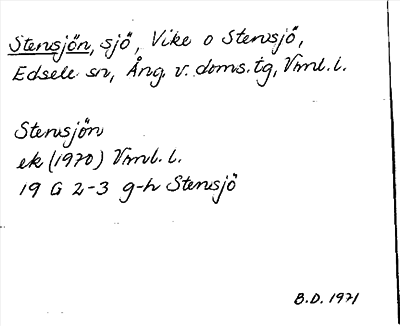 Stensjön, sjö, Vike o Stensjö,
Edsele sn, Ång. v. doms.tg, Vml. l.
Stensjön
ek (1970) Vml. l.
19 G 2-3 g-h Stensjö
B.D. 1971